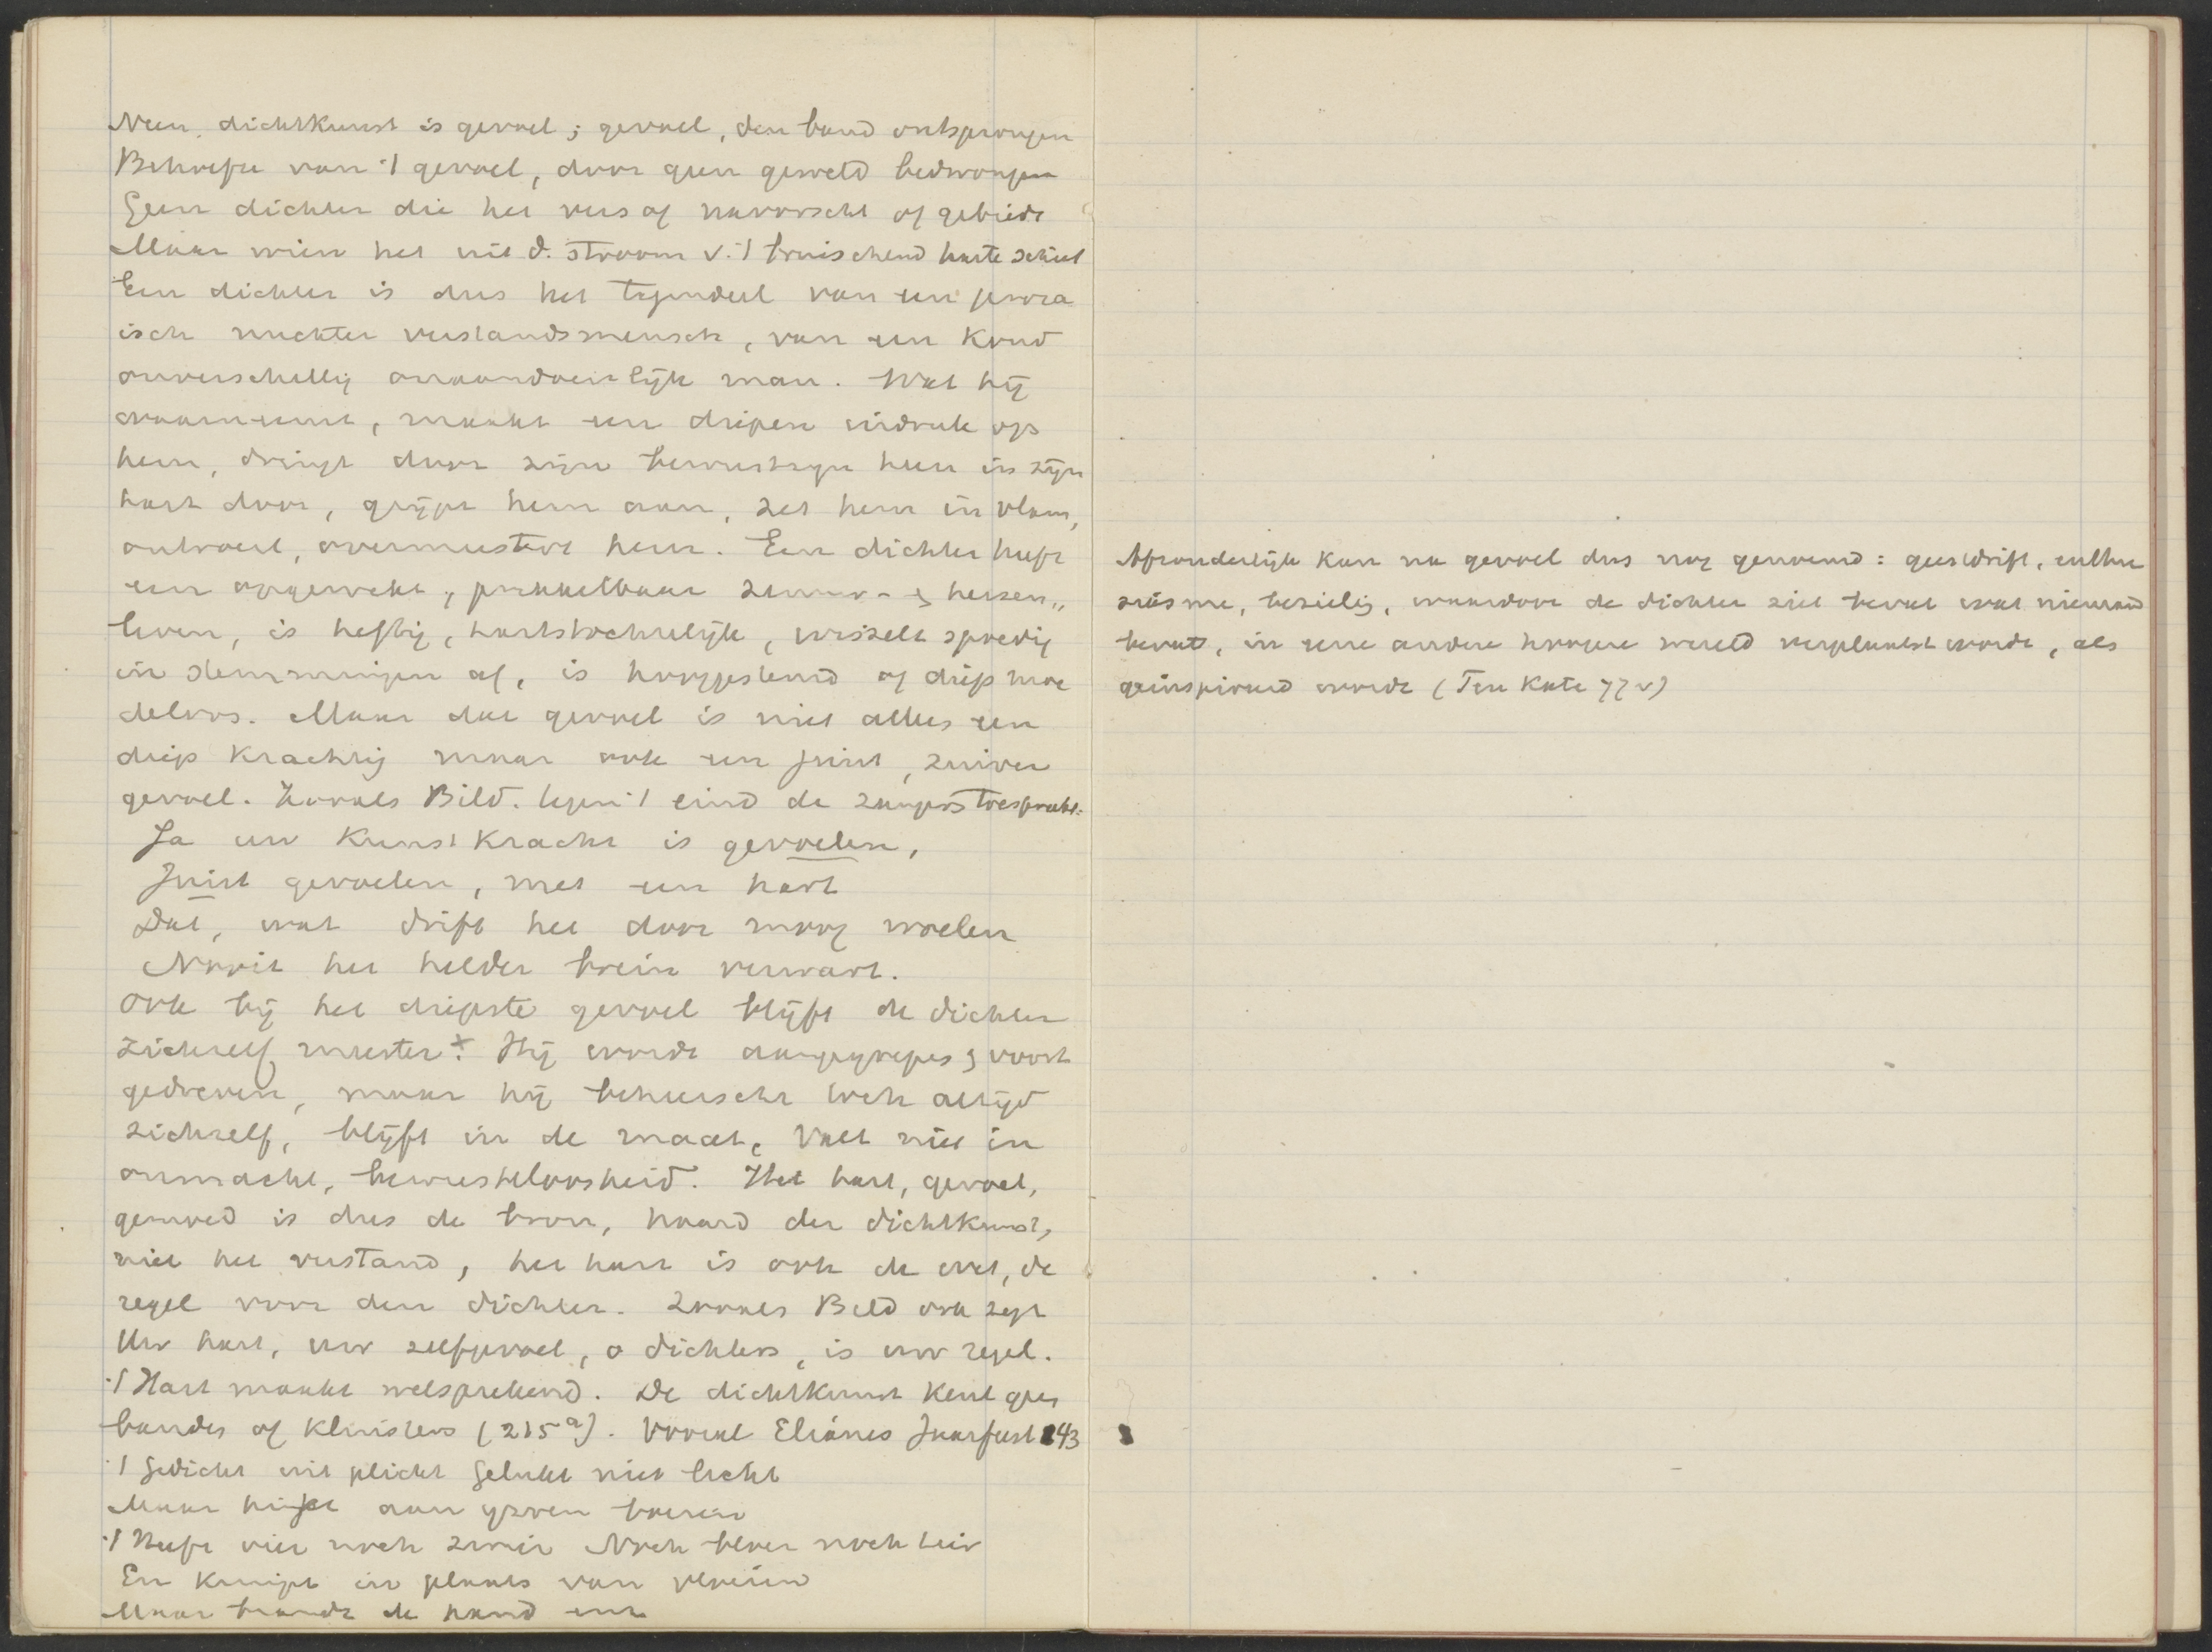 Neen. dichtkunst is gevoel; gevoel, den band ontsprongen
Behoefte van 't gevoel, door geen geweld bedwongen
Geen dichter die het vers of navorscht of gebiedt
Maar wien het uit d. stroom v. 't bruischend harte schiet
Een dichter is dus het tegendeel van een proza
isch nuchter verstandsmensch, van een koud
onverschillig onaandoenlijk man. Wat hij
waarneemt, maakt een diepen indruk op
hem, dringt door zijn bewustzijn heen in zijn
hart door, grijpt hem aan, zet hem in vlam,
ontroert, overmeestert hem. Een dichter heeft
een opgewekt, prikkelbaar zenuw- en hersen„
leven, is heftig, hartstochtelijk, wisselt spoedig
in stemmingen af, is hooggestemd of diep moe
deloos. Maar dat gevoel is niet alleen een
diep krachtig maar ook een juist, zuiver
gevoel. Zooals Bild. tegen 't eind de zangers toespreekt:
Ja uw Kunstkracht is gevoelen,
Juist gevoelen, met een hart
Dat, wat drift het door moog woelen
Nooit het helder brein verwart.
Ook bij het diepste gevoel blijft de dichter
zichzelf meester x. Hij wordt aangegrepen en voort
gedreven, maar hij beheerscht toch altijd
zichzelf, blijft in de maat, valt niet in
onmacht, bewusteloosheid. Het hart, gevoel,
gemoed is dus de bron, haard der dichtkunst,
niet het verstand, het hart is ook de wet, de
regel voor den dichter. Zooals Bild ook zegt
Uw hart, uw zelfgevoel, o dichters, is uw regel.
't Hart maakt welsprekend. De dichtkunst kent geen
banden of kluisters (215a). Vooral Elianes Jaarfeest 243
't Gedicht uit plicht Gelukt niet licht
Maar hijgt aan ijzren boeien
't Heeft vier noch zwier Noch bloem noch tier
En knijpt in plaats van vloeien
Maar brandt de hand eens
Afzonderlijk kan na gevoel dus nog genoemd: geestdrift, enthou
siasme, bezieling, waardoor de dichter ziet bevat wat niemand
bevat, in eene andere hoogere wereld verplaatst wordt, als
geinspireerd wordt (Ten Kate 77 v)